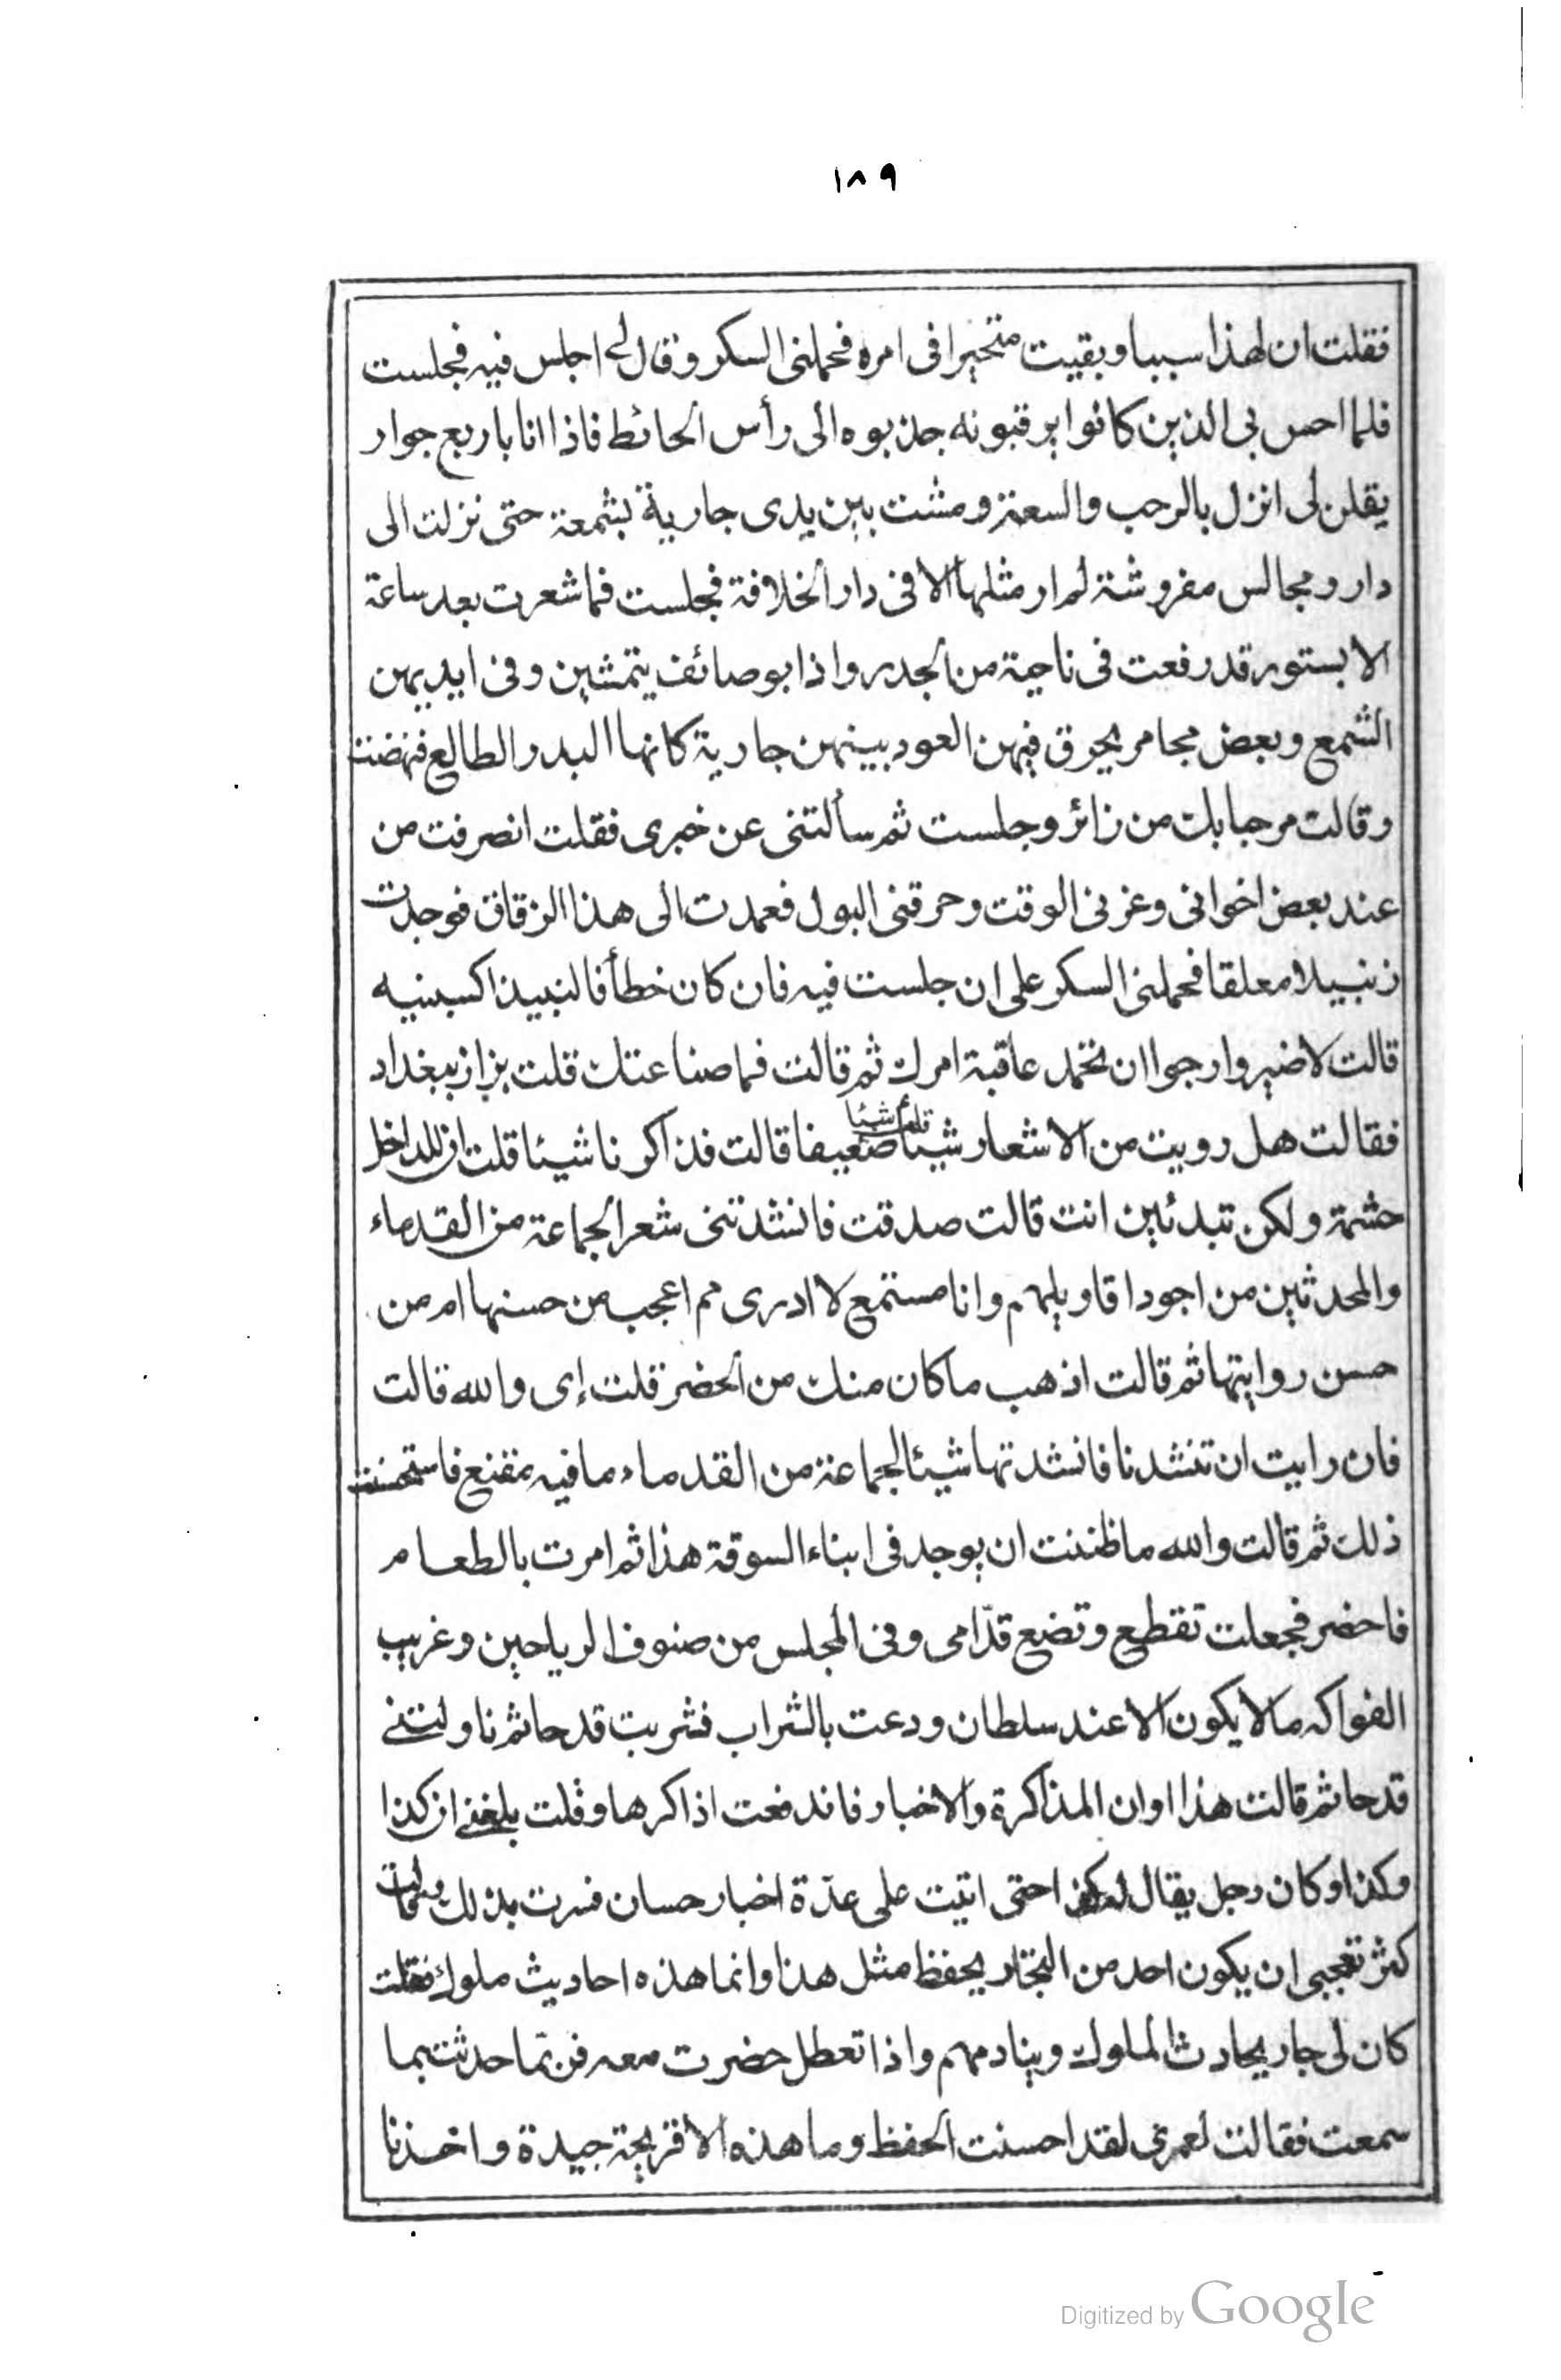 ١٨٩
فقلت ان لهذا سببا وبقيت متحيرا فى امره فحملنى السكر وقال لى اجلس فيه فجلست
فلما احس بى الذين كانوا يرقبونه جذبوه الى رأس الحائط فاذا انا باربع جوار
يقلن لى انزل بالرحب والسعة ومشت بين يدى جارية بشمعة حتى نزلت الى
دار ومجالس مفروشة لم ار مثلها الا فى دار الخلافة فجلست فما شعرت بعد ساعة
الا بستور قد رفعت فى ناحية من الجدر واذا بوصائف يتمشين وفى ايديهن
الشمع وبعض مجامر يحرق فيهن العود بينهن جارية كانها البدر الطالع فنهضت
وقالت مرحبا بك من زائر وجلست ثم سألتنى عن خبرى فقلت انصرفت من
عند بعض اخوانى وغرنى الوقت وحرقنى البول فعمدت الى هذا الزقاق فوجدت
زنبيلا معلقا فحملنى السكر على ان جلست فيه فان كان خطأ فالنبيذ اكسبنيه
قالت لا ضير وارجوا ان تحمد عاقبة امرك ثم قالت فما صناعتك قلت بزاز ببغداد
فقالت هل رويت من الاشعار شيئا قلت شيئا ضعيفا قالت فذاكرنا شيئا قلت ان للداخل
حشمة ولكن تبدئين انت قالت صدقت فانشدتنى شعر الجماعة من القدماء
والمحدثين من اجود اقاويلهم وانا مستمع لا ادرى مم اعجب من حسنها ام من
حسن روايتها ثم قالت اذهب ما كان منك من الحضر قلت إى والله قالت
فان رايت ان تنشدنا فانشدتها شيئا لجماعة من القدماء ما فيه مقنع فاستحسنت
ذلك ثم قالت والله ما ظننت ان يوجد فى ابناء السوقة هذا ثم امرت بالطعام
فاحضر فجعلت تقطع وتضع قدّامى وفى المجلس من صنوف الرياحين وغريب
الفواكه ما لا يكون الا عند سلطان ودعت بالشراب فشربت قدحا ثم ناولتنى
قدحا ثم قالت هذا اوان المذاكرة والاخبار فاندفعت اذاكرها وقلت بلغنى ان كذا
وكذا وكان رجل يقال له كذا حتى اتيت على عدّة اخبار حسان فسرت بذلك وقالت
كثر تعجبى ان يكون احد من التجار يحفظ مثل هذا وانما هذه احاديث ملوك فقلت
كان لى جار يحادث الملوك وينادمهم واذا تعطل حضرت معه فربّما حدثت بما
سمعت فقالت لعمرى لقد احسنت الحفظ وما هذه الا قريحة جيدة واخذنا
Digitized by Google